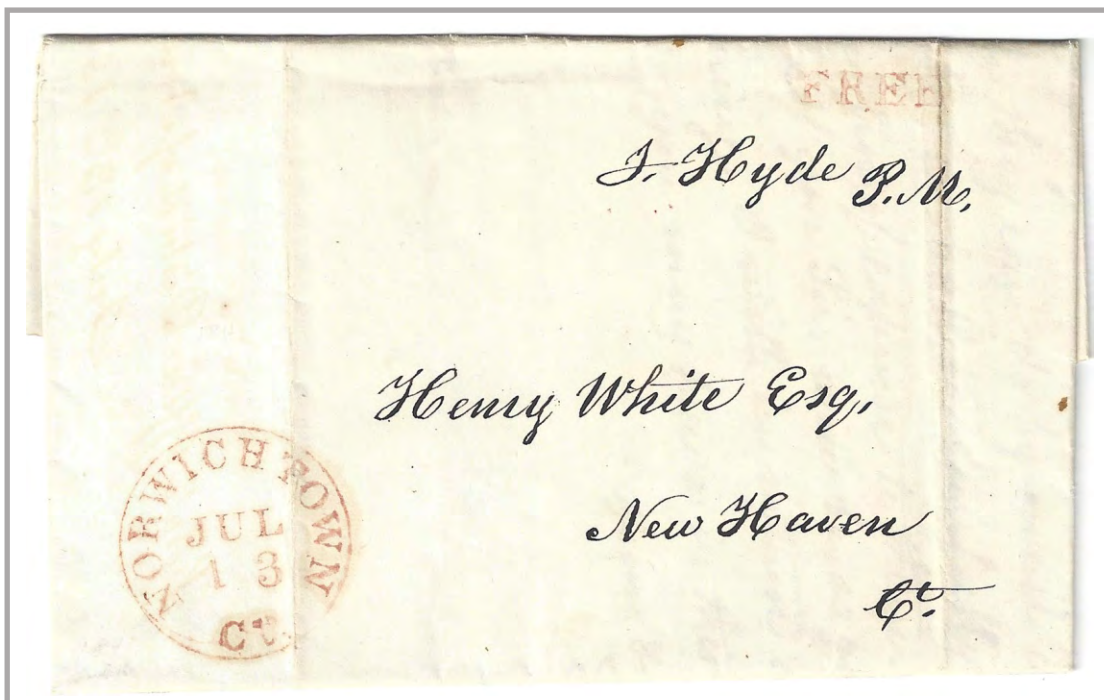 FREE
J. Hyde P.M.
Henry White Esq.
New Haven
Ct.
NORWICH TOWN
JUL
13
Ct.